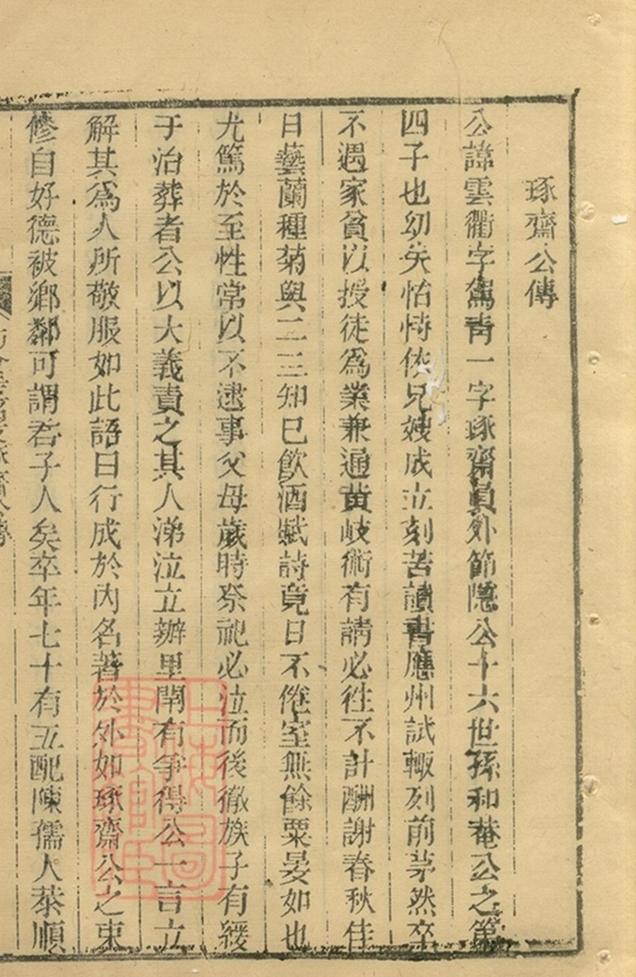 琢齋公傳
公諱雲衢字駕青一字琢齋貟外節隱公十六世孫和菴公之第
四子也幼失怙恃依兄嫂成立刻苦讀書應州試輙列前茅然卒
不遇家貧以授徒爲業兼通黄岐術有請必徃不計酬謝春秋佳
日藝蘭種菊與二三知已飲酒賦詩竟日不倦室無餘粟晏如也
尤篤於至性常以不逮事父母歲時祭祀必泣而後徹族子有緩
于治葬者公以大義責之其人涕泣立辦里閈有爭得公一言立
解其爲人所敬服如此語曰行成於内名著於外如琢齋公之束
修自好德被鄉鄰可謂君子人矣卒年七十有五配陳孺人恭順